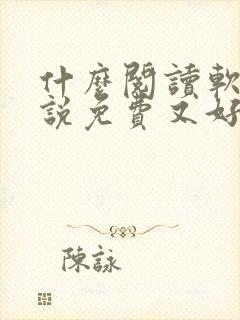 什麼閱讀軟
說免費又好
陳詠